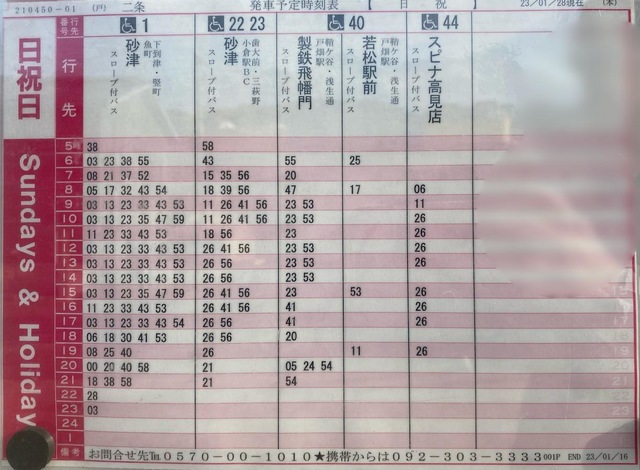 210450-01 (戸) 二条 発車予定時刻表 【 日 祝 】 23/01/28現在 (木)
番号 行先 1 22 23 40 44
日祝日
行先
砂津 魚町 下到津・竪町 スロープ付バス
砂津 小倉駅BC 歯大前・三萩野 スロープ付バス
製鉄飛幡門 戸畑駅 鞘ケ谷・浅生通 スロープ付バス
若松駅前 戸畑駅 鞘ケ谷・浅生通 スロープ付バス
スピナ高見店 スロープ付バス
Sundays & Holiday
5時 38 58
6 03 23 38 55 43 55 25
7 08 21 37 52 15 35 56 20
8 05 17 32 43 54 18 39 56 47 17 06
9 03 13 23 33 43 53 11 26 41 56 23 53 11
10 03 13 23 35 47 59 11 26 41 56 23 53 26
11 11 23 33 43 53 18 56 23 26
12 03 13 23 33 43 53 26 41 56 23 53 26
13 03 13 23 33 43 53 26 56 23 53 26
14 03 13 23 33 43 53 26 56 23 53
15 03 13 23 35 47 59 26 41 56 23 53 26
16 11 23 33 43 53 26 41 56 41 26
17 03 13 23 33 43 54 26 56 41 26
18 06 18 30 41 53 26 56 20
19 08 25 40 26 11 26
20 00 20 40 58 21 05 24 54
21 18 38 58 21 54
22 28
23 03
24
1
備考 お問合せ先℡0570-00-1010★携帯からは092-303-3333 001P END 23/01/16